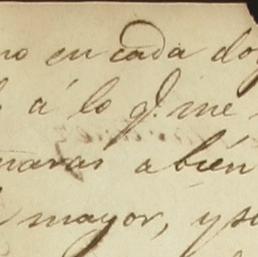 no en cada do
á lo q. me
narás abien
mayor, y su